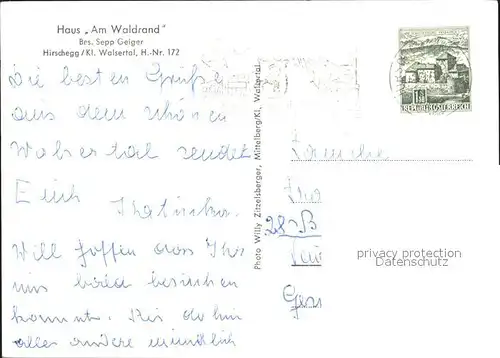 Haus „Am Waldrand"
Bes. Sepp Geiger
Hirschegg/Kl. Walsertal, H.-Nr. 172
Die besten Grüße
aus dem schönen
Walsertal sendet
Euch
Will hoffen das Ihr
uns bald besuchen
kommt. Bis dahin
alles andere mündlich
Photo Willy Zitzelsberger, Mittelberg/Kl. Walsertal
REPUBLIK ÖSTERREICH
Familie
28 B
privacy protection
Datenschutz